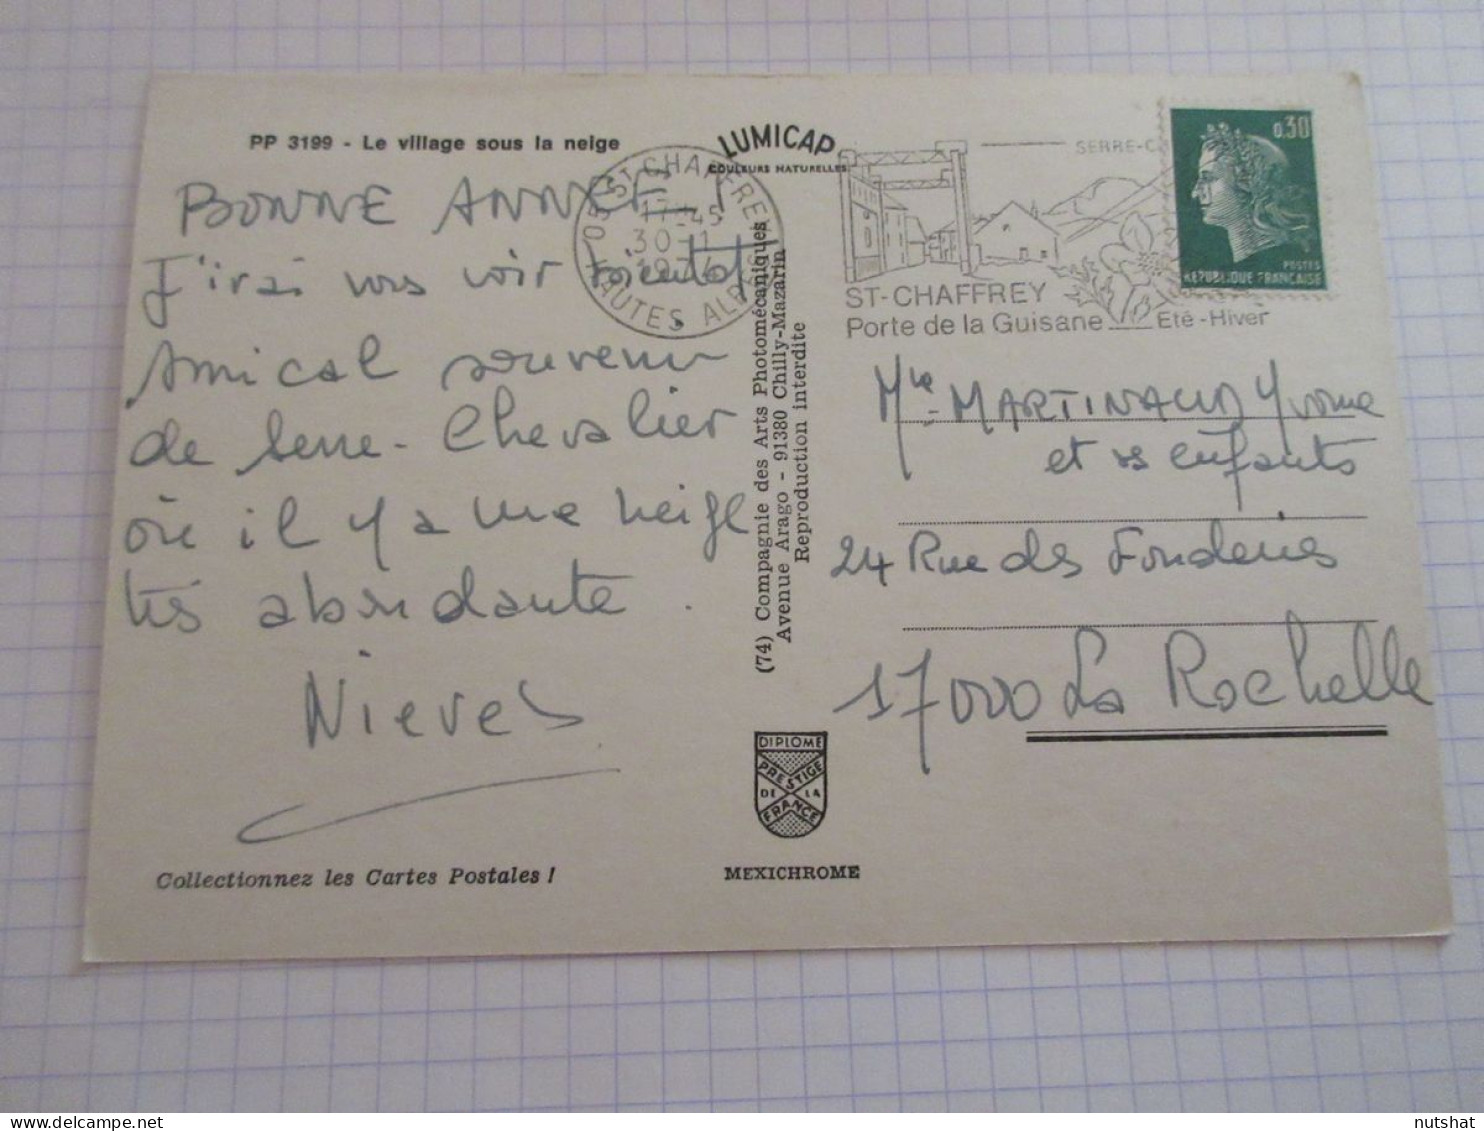 PP 3199 - Le village sous la neige
BONNE ANNEE !
J'irai vous voir bientôt
Amical souvenir
de Serre-Chevalier
où il y a une neige
très abondante.
Nieves
Collectionnez les Cartes Postales !
LUMICAP
COULEURS NATURELLES
05 ST-CHAFFREY
17H45
30-1
1974
HAUTES ALPES
(74) Compagnie des Arts Photomécaniques
Avenue Arago - 91380 Chilly-Mazarin
Reproduction interdite
DIPLOME
PRESTIGE
DE LA
FRANCE
MEXICHROME
SERRE-C
ST-CHAFFREY
Porte de la Guisane Eté-Hiver
0,30
POSTES
REPUBLIQUE FRANÇAISE
Mle MARTINAUD Yvonne
et ses enfants
24 Rue des Fonderies
17000 La Rochelle
nutshat